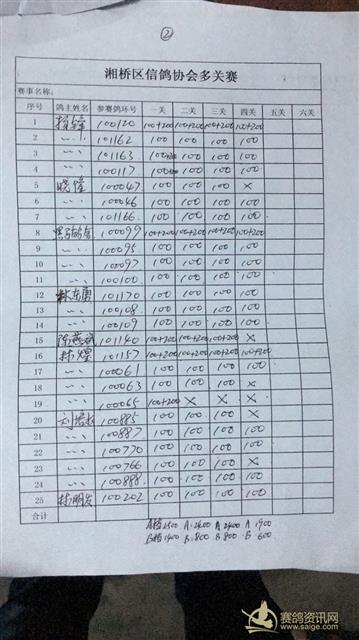 ②
湘桥区信鸽协会多关赛
赛事名称:
序号 鸽主姓名 参赛鸽环号 一关 二关 三关 四关 五关 六关
1 100120 100+200 100+200 100+200 100+200
2 101162 100 100 100 100
3 101163 100 100 100
4 100117 100 100 100
5 100047 100 100 100 ×
6 100046 100 100 100 100
7 101166 100 100 100 100
8 100099 100+200 100+200 100+200 100+200
9 100095 100 100 100 100
10 100097 100 100 100 100
11 100100 100 100 100 100
12 林东勇 101170 100 100 100 100
13 100108 100 100 100 100
14 100109 100 100 100 100
15 101140 100+200 100+200 100+200 ×
16 林煌 101157 100+200 100+200 100+200 100+200
17 100061 100 100 100 100
18 100063 100 100 100 ×
19 100065 100+200 × × ×
20 100885 100 100 100 ×
21 100887 100 100 100 100
22 100770 100 100 100 100
23 100766 100 100 100 ×
24 100888 100 100 100 100
25 林明发 100202 100 100 100 100
合计
2500 A:2400 A 2400 A 1900
1400 B:800 B 800 B 600
赛鸽资讯网
www.saige.com